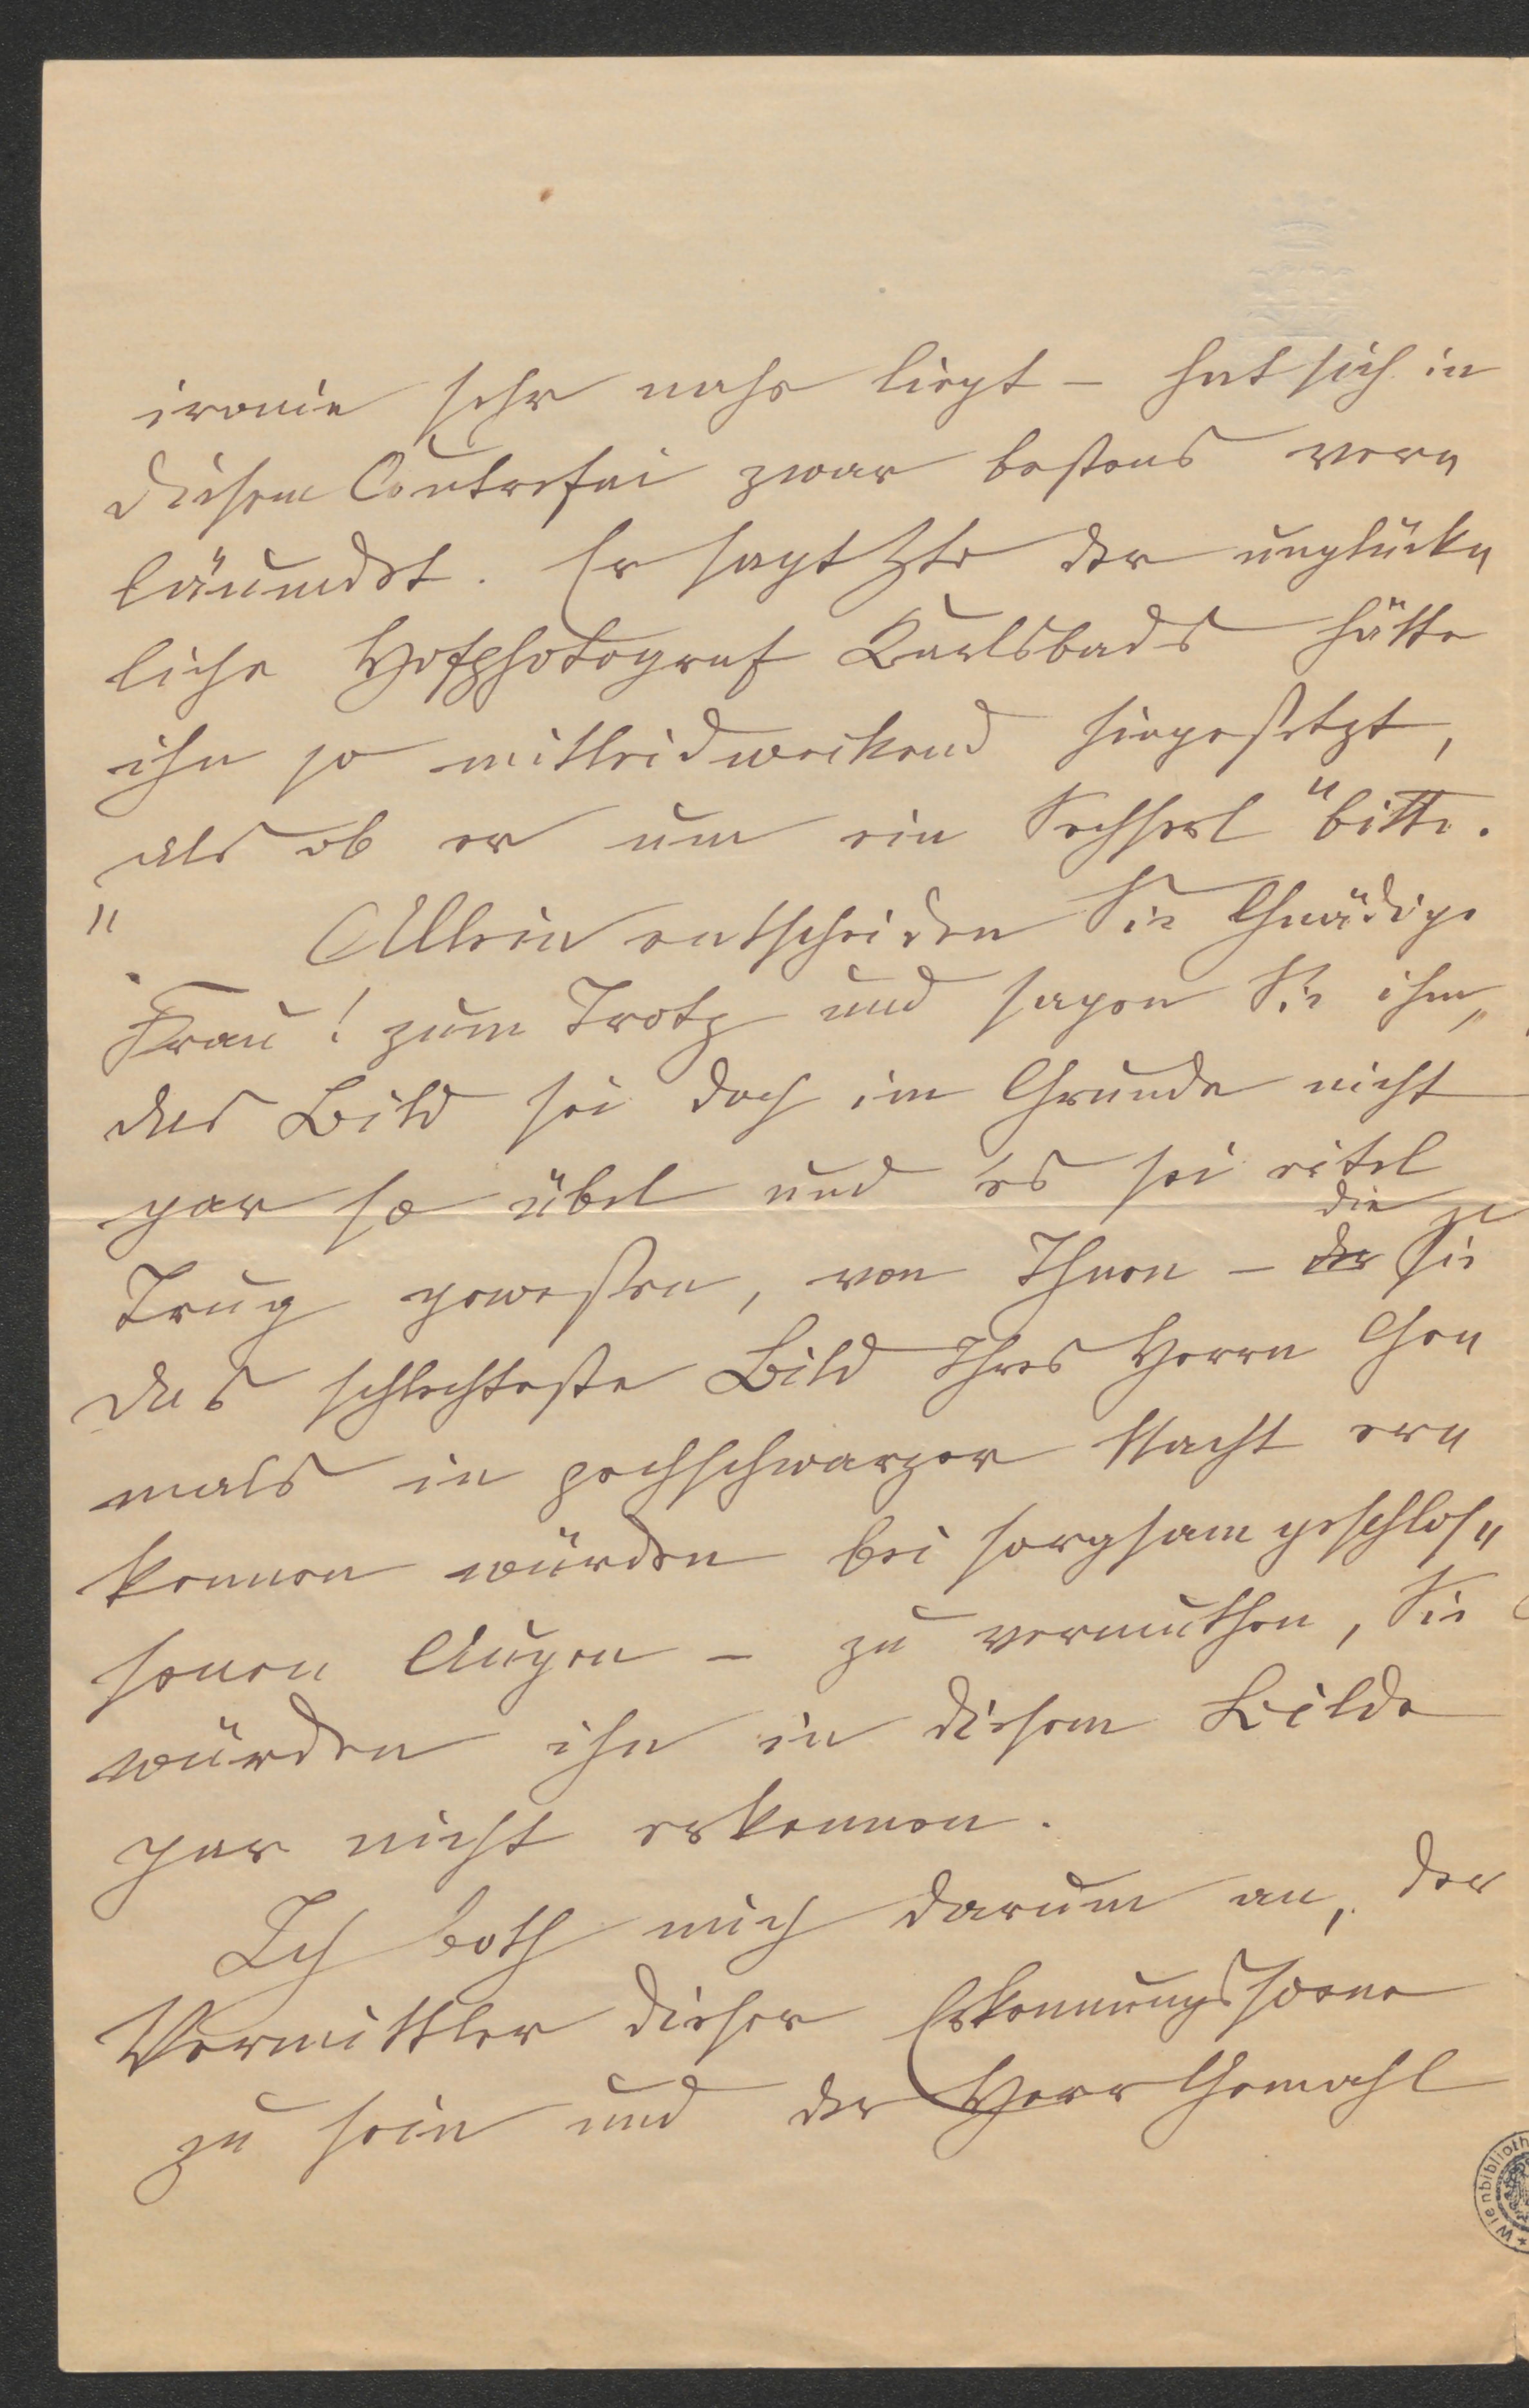 ironie sehr nahe liegt – hat sich in
diesem Contrefei zwar bestens ver„
läumdet. Er sagt der unglück„
liche Hofphotograf Karlsbads hätte
ihn so mitleidweckend hingesetzt,
als ob er um ein Sechserl" bitte.
" Allein entscheiden Sie Gnädige
Frau! zum Trotz und sagen Sie ihm„
das Bild sei doch im Grunde nicht
gar so übel und es sei eitel
die
Trug gewesen, von Ihnen – der Sie
das schlechteste Bild Ihres Herrn Ge„
mals in pechschwarzer Nacht er„
kennen würden bei sorgsam geschlos„
senen Augen – zu vermuthen, Sie
würden ihn in diesem Bilde
gar nicht erkennen.
Ich both mich darum an, der
Vermittler dieser Erkennungsscene
zu sein und der Herr Gemahl
Wienbiblioth